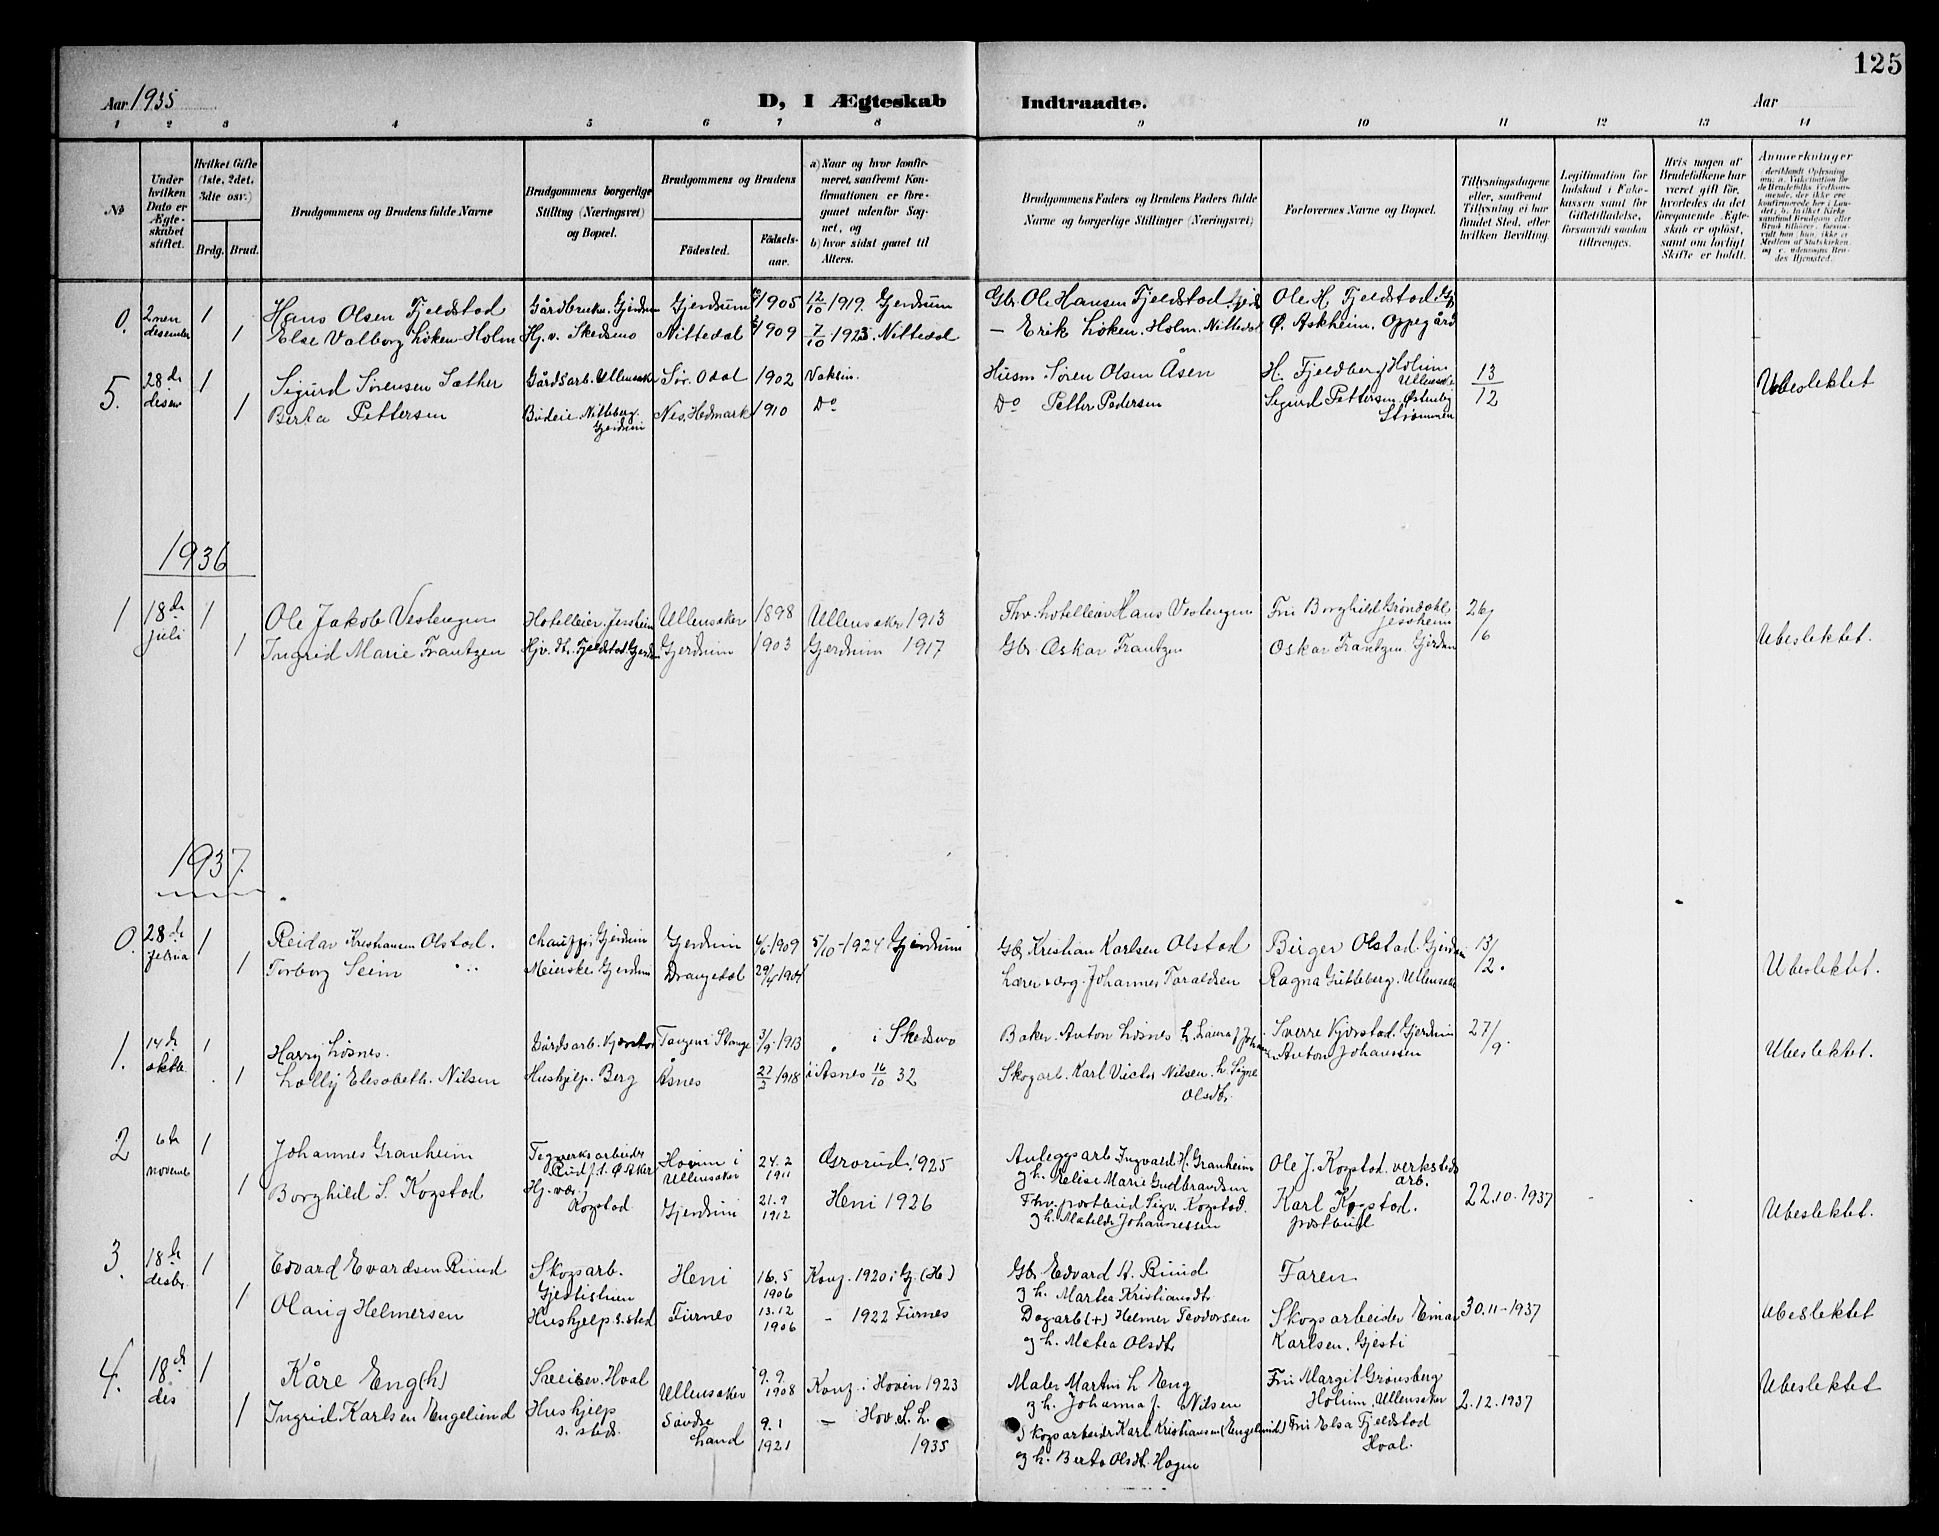 125
Aar 1935 D, I Ægteskab Indtraadte. Aar
1 2 3 4 5 6 7 8 9 10 11 12 13 14
No
Under hvilken Dato er Ægteskabet stiftet.
Hvilket Gifte (1ste, 2det, 3die osv.)
Brdg. Brud.
Brudgommens og Brudens fulde Navne
Brudgommens borgerlige Stilling (Næringsvei) og Bopæl.
Brudgommens og Brudens
Födested. Födselsaar.
a) Naar og hvor konfirmeret, samt fremt Konfirmationen er foregaaet udenfor Sognet, og
b) hvor sidst gaaet til Alters.
Brudgommens Faders og Brudens Faders fulde Navne og borgerlige Stillinger (Næringsvei)
Forlovernes Navne og Bopæl.
Tillysningsdagene eller, saafremt Tillysning ei har fundet Sted, efter hvilken Bevilling.
Legitimation for Indskud i Enkekassen samt for Giftetilladelse, forsaavidt saadan tiltrænges.
Hvis nogen af Brudefolkene har været gift før, hvorledes da det foregaaende Ægteskab er opløst, samt om lovligt Skifte er holdt.
Anmerkninger
0. 2nen desember 1 Hans Olsen Fjeldstad Gårdbruker. Gjerdrum Gjerdrum 1905 12/10 1919. Gjerdrum Gbr. Ole Hansen Fjeldstad Ole H. Fjeldstad
1 Else Valborg Løken Holm Hj. v. Skedsmo Nittedal 1909 7/10 1923. Nittedal — Erik Løken Holm. Nittedal Ø. Askheim. Oppegård
5. 28de desem 1 Sigurd Sørensen Sæther Gårdsarb. Ullensaker Sør. Odal 1902 Vaksin. Husm. Søren Olsen Åsen H. Fjeldberg Holum Ullensaker 13/12 Ubeslektet
1 Berta Pettersen Budeie Nitteberg. Gjerdrum Nes. Hedmark 1910 Do Do Petter Pedersen Sigurd Pettersen Østenby Strømmen
1936
1 18de juli 1 Ole Jakob Vestengen Hotelleier. Jessheim Ullensaker 1898 Ullensaker 1913 Fhv. hotelleier Hans Vestengen Fru Borghild Grøndahl Jessheim 26/6
1 Ingrid Marie Frantzen Hjv. Fjeldstad Gjerdrum Gjerdrum 1903 Gjerdrum 1917 Gbr. Oskar Frantzen Oskar Frantzen. Gjerdrum Ubeslektet.
1937
0. 28de februa 1 Reidar Kristiansen Olstad. Chauffør Gjerdrum Gjerdrum 4/6 1909 5/10-1924 Gjerdrum Gbr Kristian Karlsen Olstad Birger Olstad Gjerdrum 13/2.
1 Torborg Seim Meierske Gjerdrum Drangedal 29/4 1904 Lærer & org. Johannes Taraldsen Ragna Gutteberg. Ullensaker Ubeslektet.
1. 14de oktbr. 1 Harry Løsnes. Gårdsarb. Kjærstad Tangen i Stange 3/9 1913 i Skedsmo Baker. Anton Løsnes h. Laura Sverre Kjærstad. Gjerdrum 27/9. Ubeslektet.
1 Lolly Elisabeth. Nilsen Hushjelp. Berg Åsnes 22/2 1918 i Åsnes 16/10 32 Skogarb. Karl Victor Nilsen. h. Signe Olsdtr. Anton Johanssen
2 6te novemb 1 Johannes Granheim Tegverksarbeider Rud f. t. Ø. Aker Hovin i Ullensaker 24.2 1911 Grorud 1925 Anleggsarb Ingvald H. Granheim Ole J. Kogstad. verkstedsarb.
og h. Elise Marie Gudbrandsen
1 Borghild S. Kogstad Hj. vær. Kogstad Gjerdrum 21.9 1912 Heni 1926 Fhv. postbud Sigv. Kogstad. Karl Kogstad. postbud 22.10.1937 Ubeslektet.
og h. Matilde Johannessen
3. 18de desbr. 1 Edvard Evardsen Ruud Skogsarb. Gjestistuen Heni 16.5 1906 Konf. 1920 i Gj. (H) Gbr Edvard A. Ruud Faren
og h. Martea Kristiansdtr
1 Olaug Helmersen Hushjelp s. sted Furnes 13.12 1906 – 1922 Furnes Dagarb (+) Helmer Teodorsen Skogsarbeider Einar Karlsen. Gjesti 30.11-1937 Ubeslektet
og h. Matea Olsdtr
4. 18de des 1 Kåre Eng(h) Sveiser. Hval Ullensaker 9.9. 1908 Konf. i Hovin 1923 Maler Martin L Eng Fru Margit Grønsberg Holum, Ullensaker 2.12.1937 Ubeslektet
og h. Johanna J. Nilsen
1 Ingrid Karlsen Engelund Hushjelp s. steds. Søndre Land 9.1 1921 – Hov. S. L. 1935 Skogsarbeider Karl Kristiansen (Engelund) Fru Elsa Fjeldstad Hval.
og h. Berte Olsdtr. Hagen